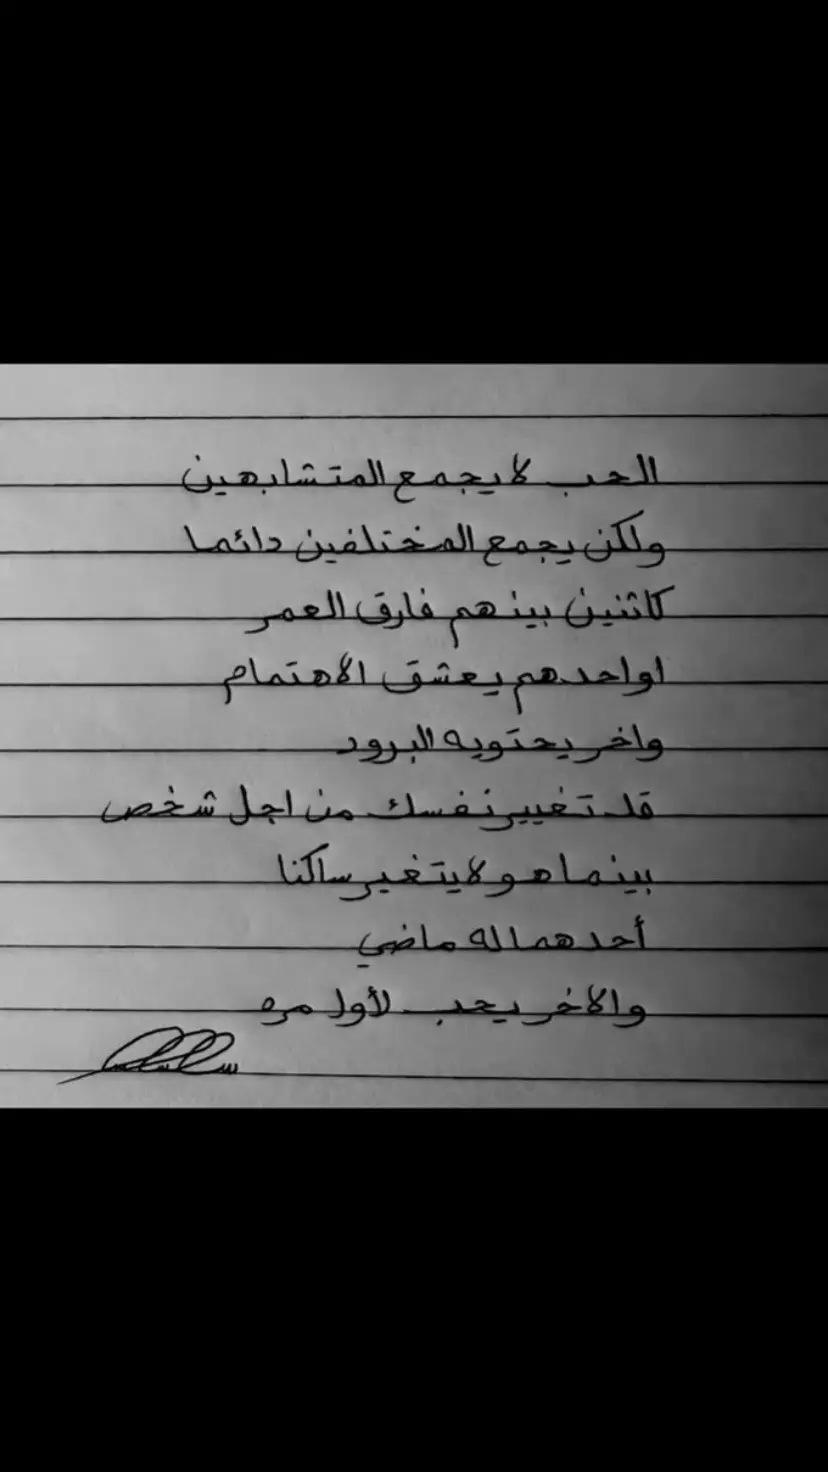 الحب لا يجمع المتشابهين
ولكن يجمع المختلفين دائما
كاثنين بينهم فارق العمر
اواحدهم يعشق الاهتمام
واخر يحتويه البرود
قد تغيير نفسك من اجل شخص
بينما هو لا يتغير ساكنا
أحدهما له ماضي
والاخر يحب لأول مره